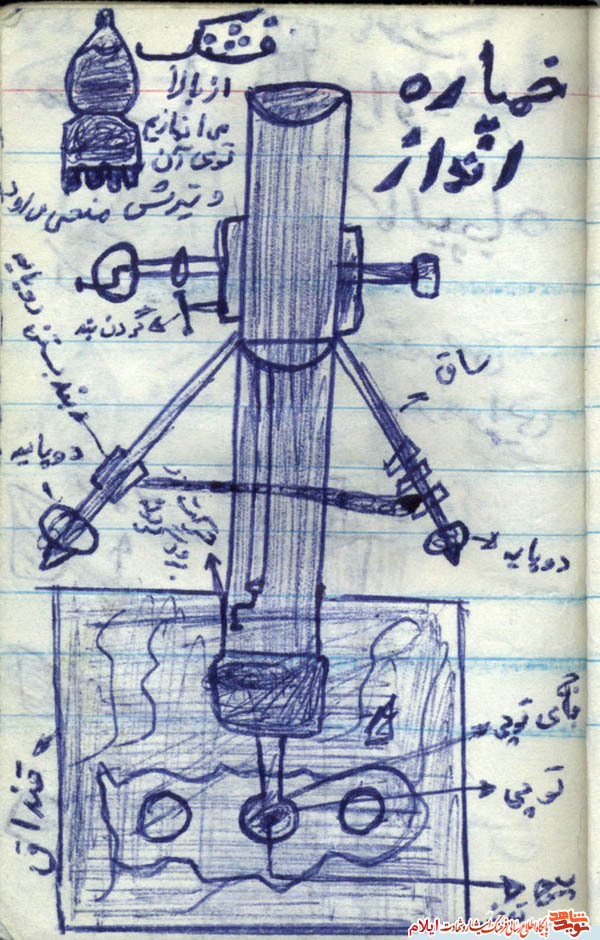 خمپاره
انداز
فشنگ
از بالا
می اندازیم
توی آن
و تیرش منحنی می رود
گردن بند
بند بستن دوپایه
دوپایه
ساق
دوپایه
جای توپی
توپی
قنداق
نوید شاهد
پایگاه اطلاع رسانی فرهنگ ایثار و شهادت ایلام